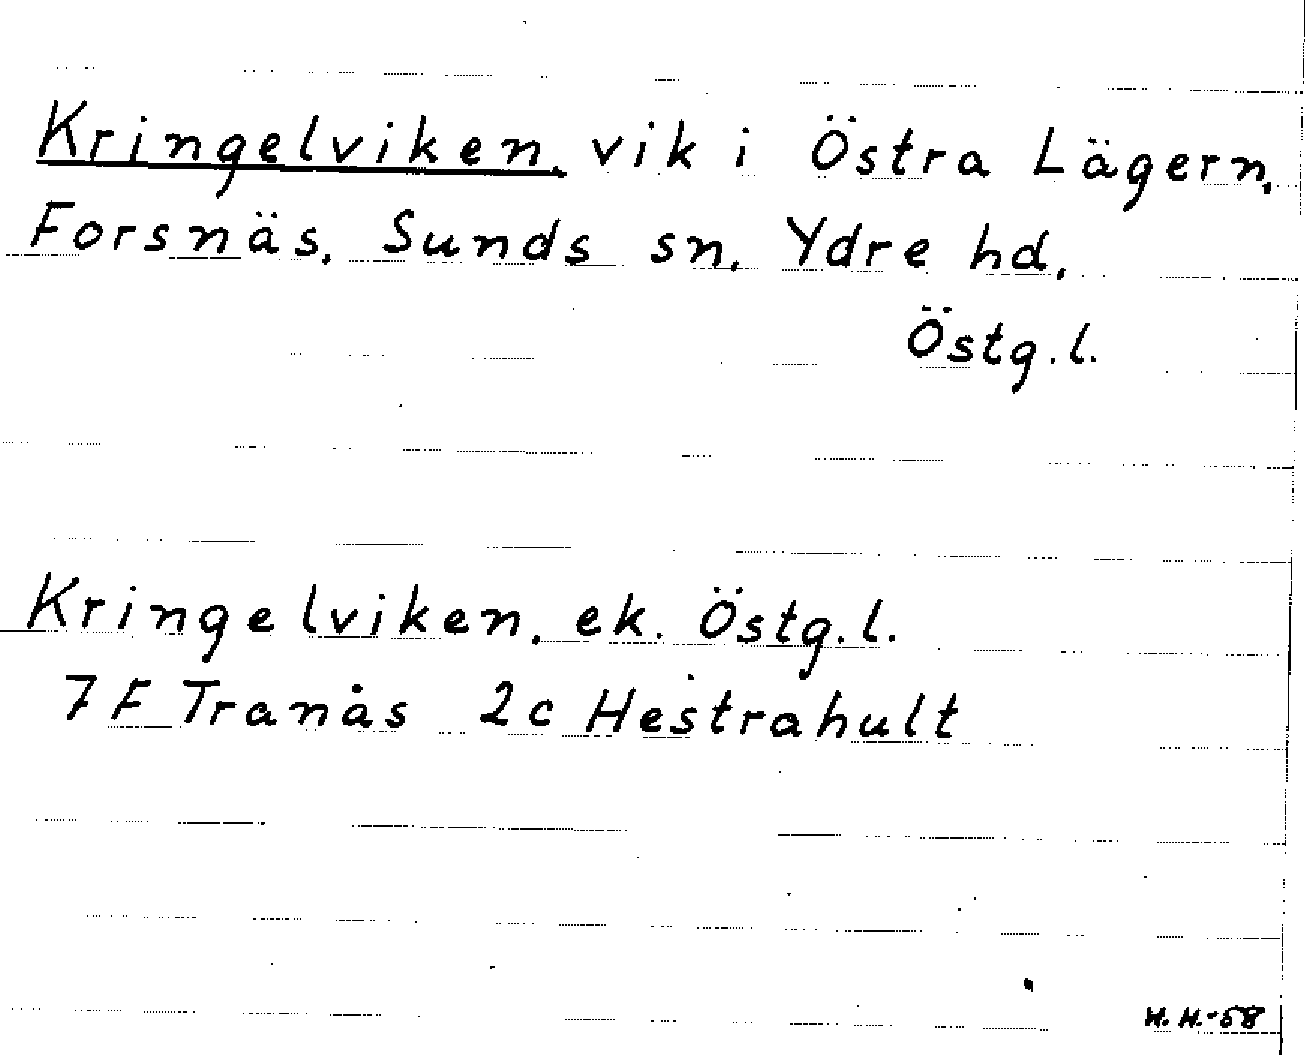 Kringelviken, vik i Östra Lägern,
Forsnäs, Sunds sn, Ydre hd,
Östg.l.
Kringelviken, ek. Östg.l.
7F Tranås 2c Hestrahult
H.H.-58